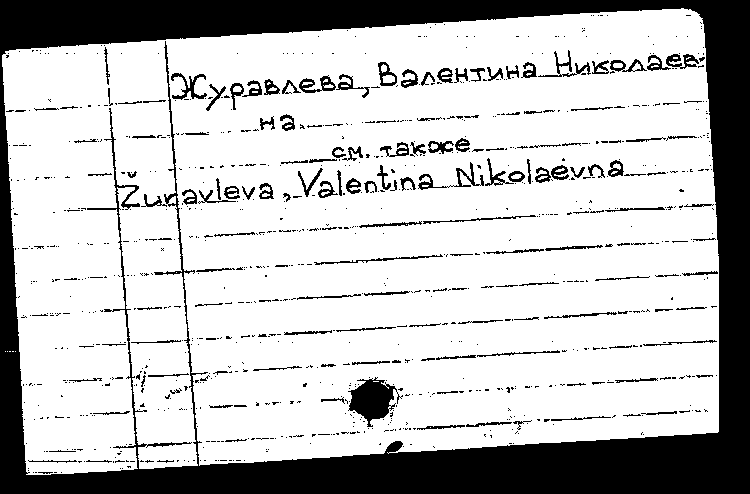 Журавлева, Валентина Николаев-
на.
см. также
Žuravleva, Valentina Nikolaevna